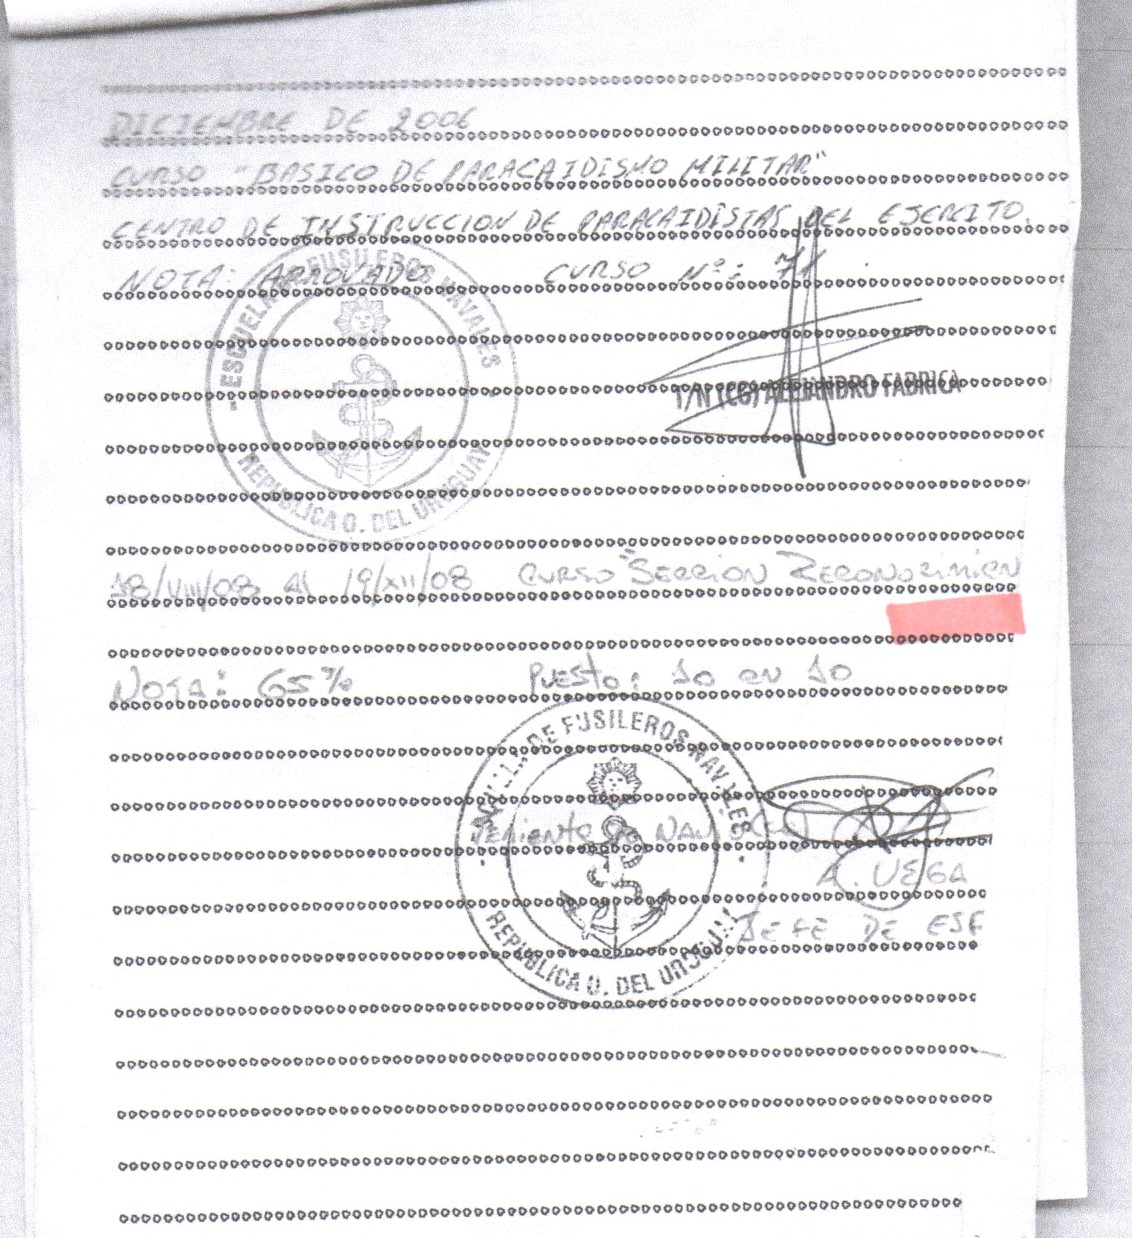 DICIEMBRE DE 2006
CURSO "BASICO DE PARACAIDISMO MILITAR"
CENTRO DE INSTRUCCION DE PARACAIDISTAS DEL EJERCITO.
NOTA: APROVADO CURSO Nº: 71
ESCUELA DE FUSILEROS NAVALES
REPUBLICA O. DEL URUGUAY
T/N (CG) ALEJANDRO FABRICA
18/VIII/08 Al 19/XII/08 CURSO "SECCION RECONOCIMIEN
NOTA: 65% PUESTO: 10 en 10
DE FUSILEROS NAVALES
REPUBLICA O. DEL URUGUAY
Teniente de NAVIO
A. VEGA
JEFE DE ESF